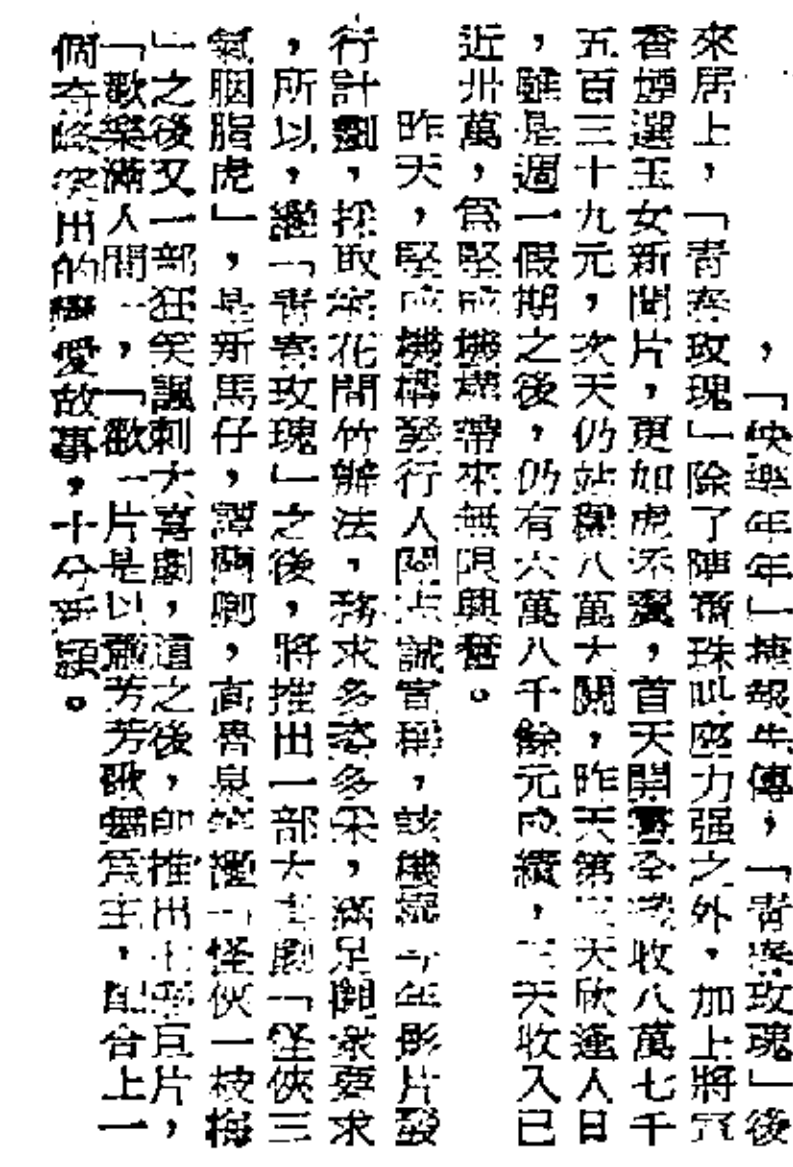 ，「快樂年年」捷報先傳，「青春玫瑰」後
來居上，「青春玫瑰」除了陳寶珠叫座力强之外，加上將冠
香煙選玉女新聞片，更如虎添翼，首天開畫全綫收八萬七千
五百三十九元，次天仍站穩八萬大關，昨天第三天欣逢人日
，雖是週一假期之後，仍有六萬八千餘元成績，三天收入已
近卅萬，爲堅成機構帶來無限興奮。
昨天，堅成機構發行人關志誠宣稱，該機構今年影片發
行計劃，採取密花間竹辦法，務求多姿多采，滿足觀衆要求
，所以，繼「青春玫瑰」之後，將推出一部大喜劇「怪俠三
氣胭脂虎」，是新馬仔，譚蘭卿，高魯泉等繼「怪俠一枝梅
」之後又一部狂笑諷刺大喜劇，這之後，即推出七彩巨片，
「歌樂滿人間」，「歡」片是以蕭芳芳歌舞爲主，配合上一
個奇峰突出的戀愛故事，十分新穎。